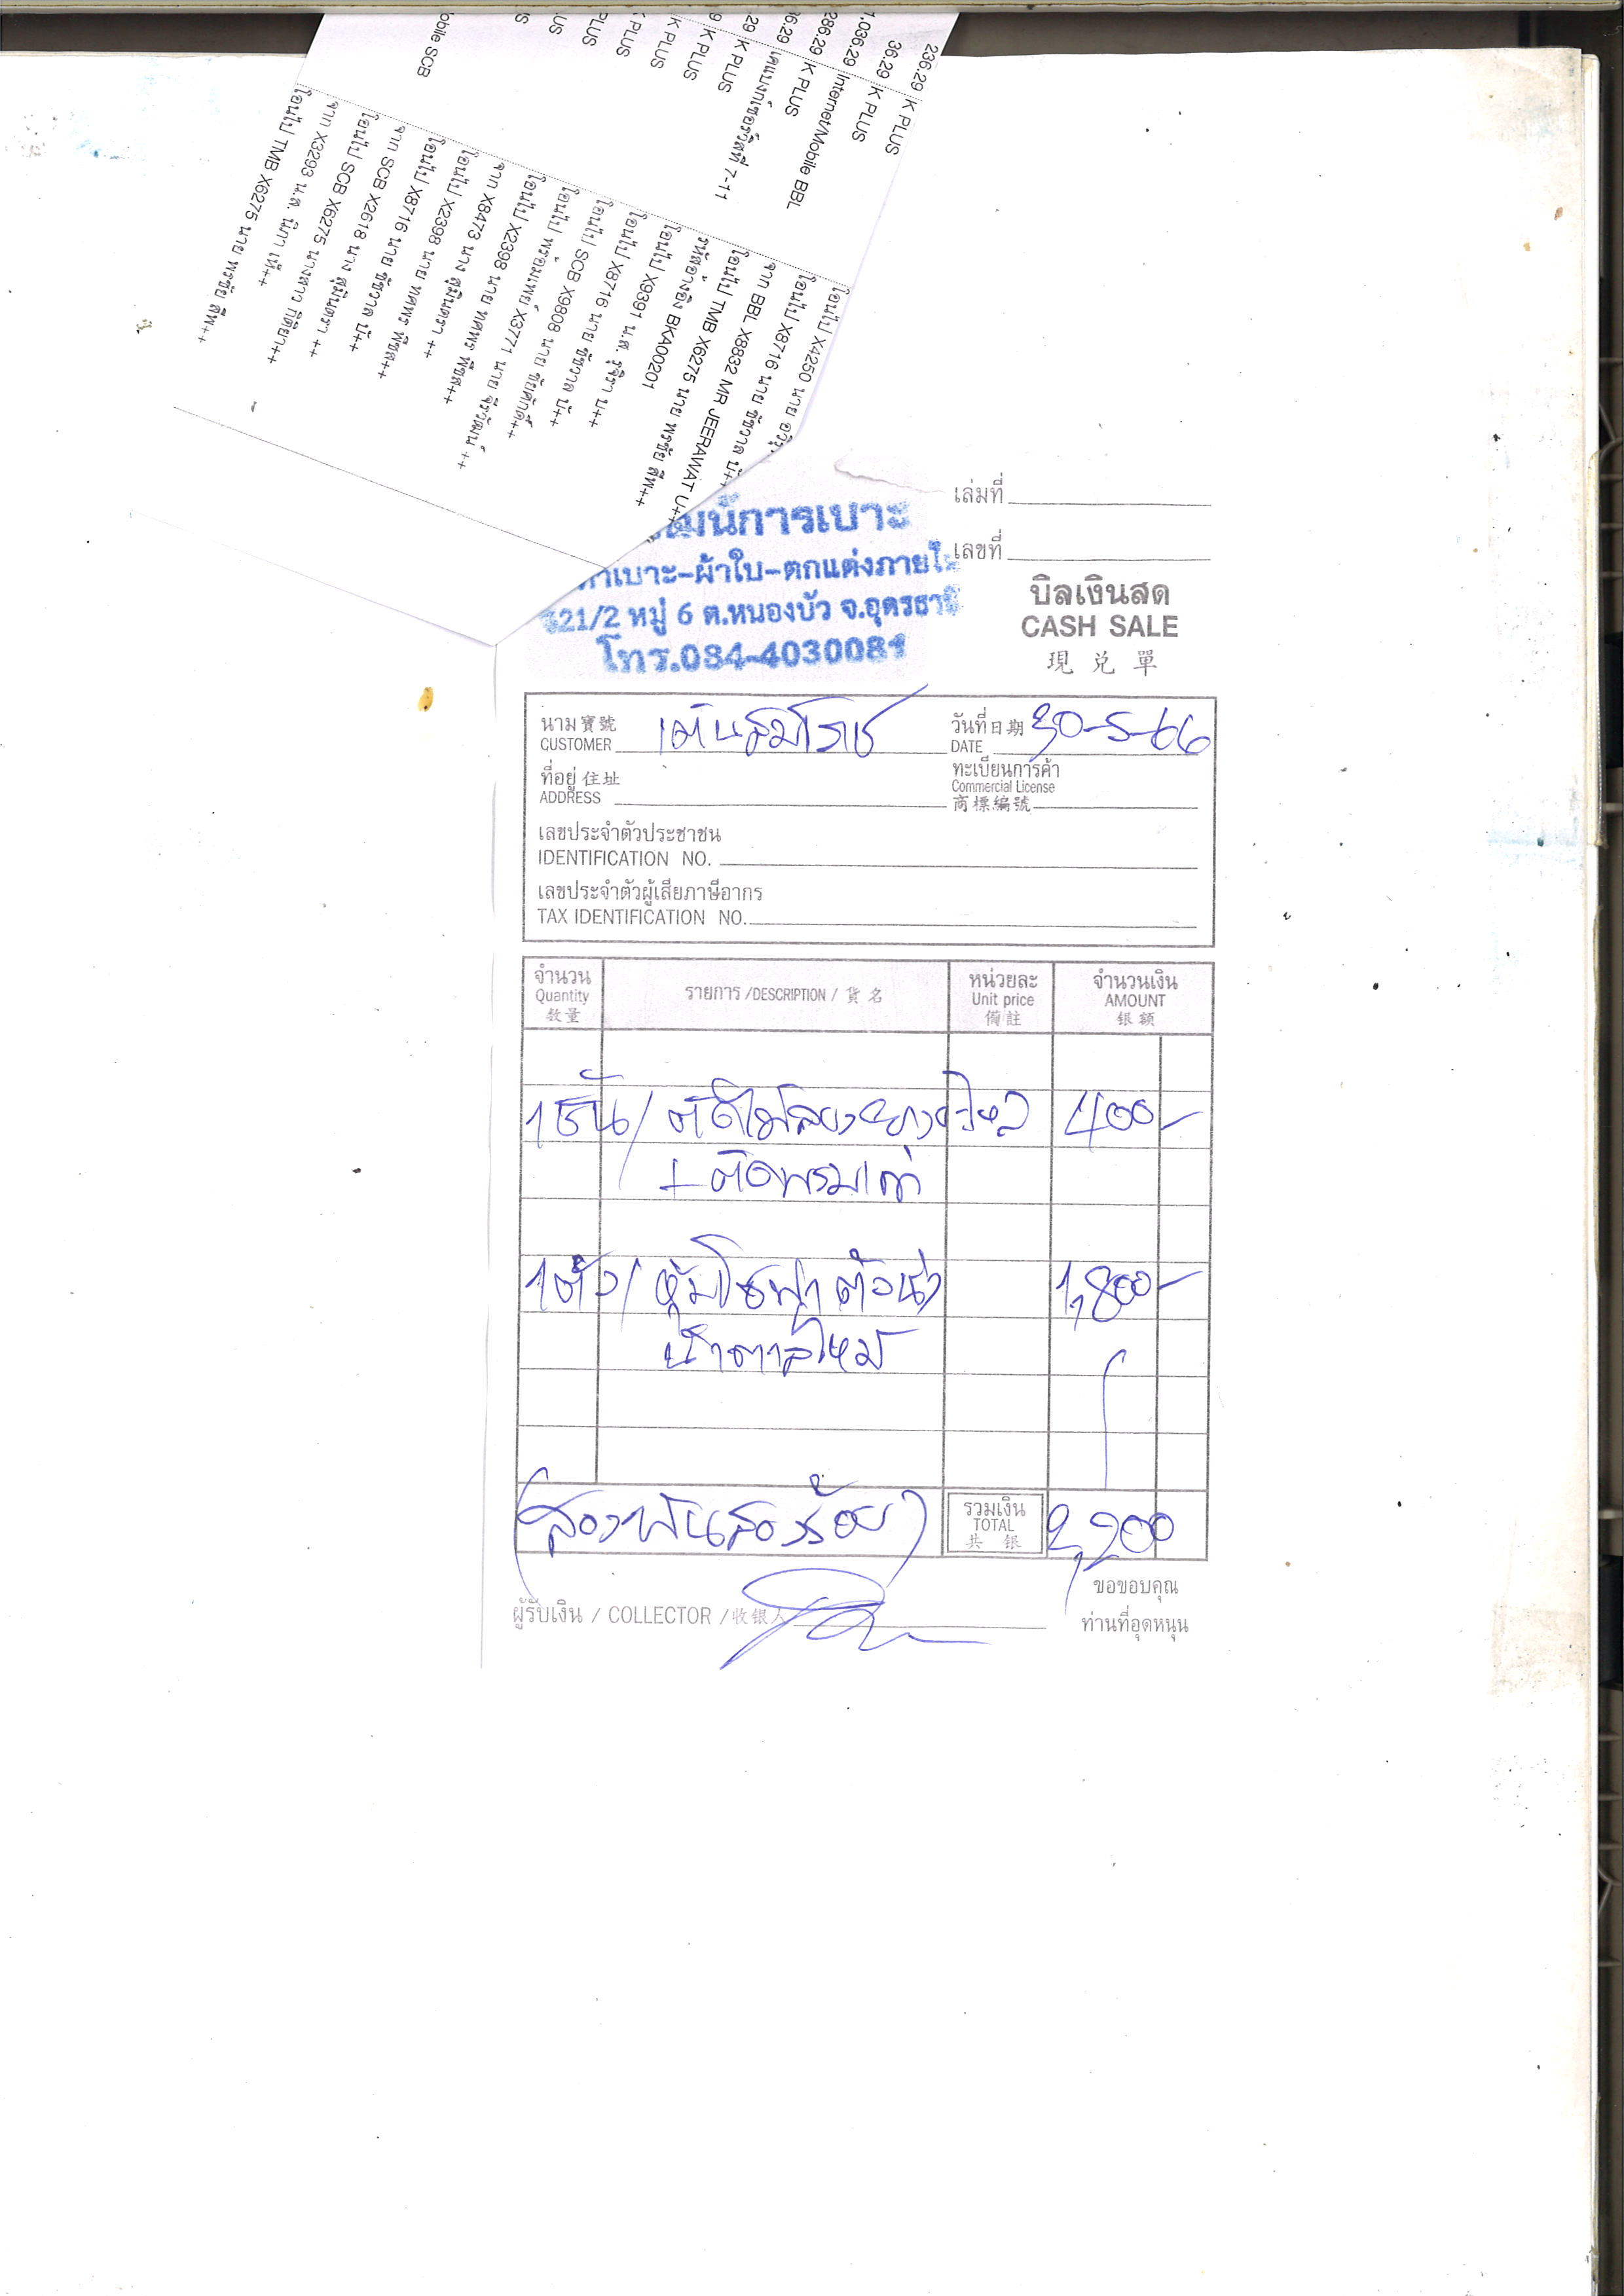 236.29 K PLUS
36.29 K PLUS
1,036.29 Internet/Mobile BBL
286.29 K PLUS
36.29 เคาน์เตอร์เซอร์วิสที่ 7-11
.29 K PLUS
9 K PLUS
K PLUS
K PLUS
PLUS
PLUS
US
S
obile SCB
โอนไป X4250 นาย
โอนไป X8716 นาย ชัชวาล บ++
จาก BBL X8832 MR JEERAWAT U++
โอนไป TMB X6275 นาย พรชัย ลีพ++
รหัสอ้างอิง BKA00201
โอนไป X9391 น.ส. รุจิรา บ++
โอนไป X8716 นาย ชัชวาล บ++
โอนไป SCB X9808 นาย ชัยศักดิ์++
โอนไป พร้อมเพย์ X3771 นาย จีรวัฒน์ ++
โอนไป X2398 นาย ทศพร พืชส++
จาก X8473 นาง สุมินตรา ++
โอนไป X2398 นาย ทศพร พืชส++
โอนไป X8716 นาย ชัชวาล บ++
จาก SCB X2618 นาง สุมินตรา ++
โอนไป SCB X6275 นางสาว กิติยา++
จาก X3293 น.ส. นิภา เห้++
โอนไป TMB X6275 นาย พรชัย ลีพ++
ฒน์การเบาะ
ทำเบาะ-ผ้าใบ-ตกแต่งภายใน
521/2 หมู่ 6 ต.หนองบัว จ.อุดรธานี
โทร.084-4030081
เล่มที่
เลขที่
บิลเงินสด
CASH SALE
現 兑 單
นาม 寶 號
CUSTOMER เต้นสมโรช
วันที่ 日 期
DATE 30-5-66
ที่อยู่ 住 址
ADDRESS
ทะเบียนการค้า
Commercial License
商 標 編 號
เลขประจำตัวประชาชน
IDENTIFICATION NO.
เลขประจำตัวผู้เสียภาษีอากร
TAX IDENTIFICATION NO.
จำนวน
Quantity
数 量
รายการ / DESCRIPTION / 貨 名
หน่วยละ
Unit price
備 註
จำนวนเงิน
AMOUNT
銀 額
400-
+ ติดพรมเก่า
1ตัว/ หุ้มโซฟา ตัวนั่ง 1,800-
น้ำตาลไหม้
(สองพันสองร้อย)
รวมเงิน
TOTAL
共 銀
2,200
ผู้รับเงิน / COLLECTOR / 收 銀 人
ขอขอบคุณ
ท่านที่อุดหนุน